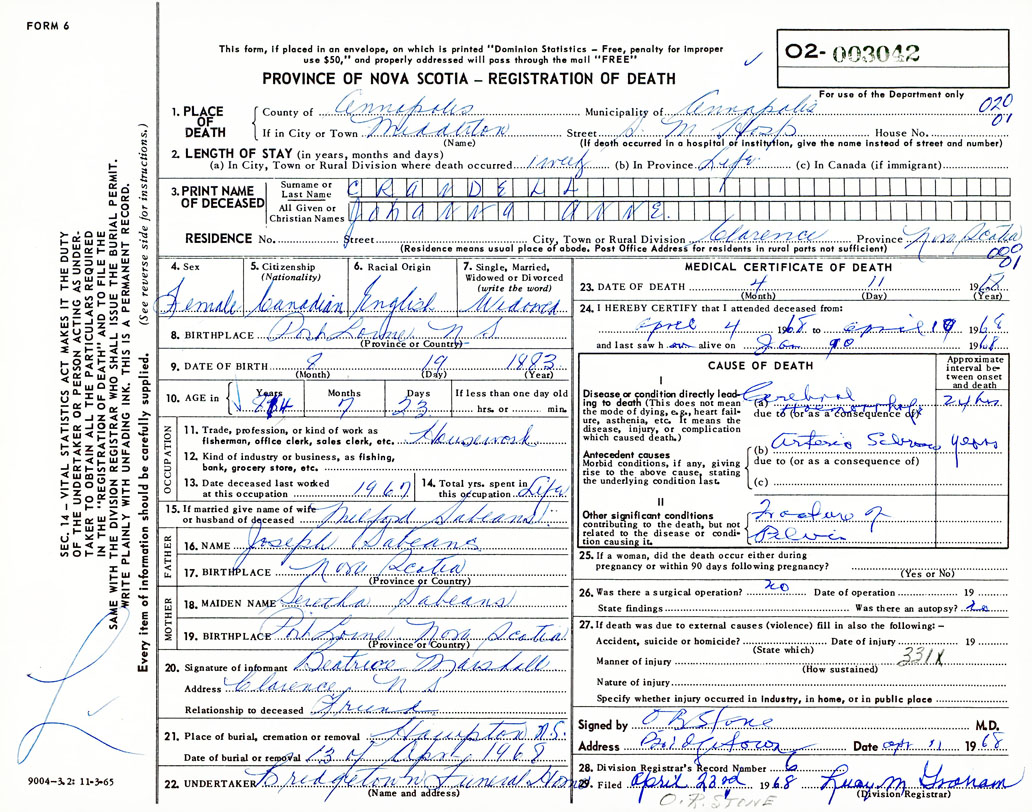 FORM 6
This form, if placed in an envelope, on which is printed "Dominion Statistics – Free, penalty for improper
use $50," and properly addressed will pass through the mail "FREE"
O2- 003042
PROVINCE OF NOVA SCOTIA – REGISTRATION OF DEATH
For use of the Department only
020
01
1. PLACE OF DEATH
County of Annapolis Municipality of Annapolis
If in City or Town Middleton Street S. M. Hosp House No.
(Name) (If death occurred in a hospital or institution, give the name instead of street and number)
2. LENGTH OF STAY (in years, months and days)
(a) In City, Town or Rural Division where death occurred 1 week (b) In Province Life (c) In Canada (if immigrant)
3. PRINT NAME OF DECEASED
Surname or Last Name CRANDELL
All Given or Christian Names Johanna Anne.
RESIDENCE No. Street City, Town or Rural Division Clarence Province Nova Scotia
(Residence means usual place of abode. Post Office Address for residents in rural parts not sufficient)
000
01
4. Sex
Female
5. Citizenship (Nationality)
Canadian
6. Racial Origin
English
7. Single, Married, Widowed or Divorced (write the word)
Widowed
8. BIRTHPLACE Port Lorne N S
(Province or Country)
9. DATE OF BIRTH 8 19 1883
(Month) (Day) (Year)
10. AGE in Years 84 Months 7 Days 23 If less than one day old
hrs. or min.
OCCUPATION
11. Trade, profession, or kind of work as fisherman, office clerk, sales clerk, etc. Housework
12. Kind of industry or business, as fishing, bank, grocery store, etc.
13. Date deceased last worked at this occupation 1967
14. Total yrs. spent in this occupation Life
15. If married give name of wife or husband of deceased Milford Sabeans
FATHER
16. NAME Joseph Sabeans
17. BIRTHPLACE Nova Scotia
(Province or Country)
MOTHER
18. MAIDEN NAME Sabeans
19. BIRTHPLACE Port Lorne Nova Scotia
(Province or Country)
20. Signature of informant Beatrice Marshall
Address Clarence, N S
Relationship to deceased Friend
21. Place of burial, cremation or removal Hampton N.S.
Date of burial or removal 13 of Apr 1968
22. UNDERTAKER Bridgetown Funeral Home
(Name and address)
MEDICAL CERTIFICATE OF DEATH
23. DATE OF DEATH 4 11 196
(Month) (Day) (Year)
24. I HEREBY CERTIFY that I attended deceased from:
april 4 1968 to april 1968
and last saw h alive on 1968
CAUSE OF DEATH
Approximate interval between onset and death
I
Disease or condition directly leading to death (This does not mean the mode of dying, e.g., heart failure, asthenia, etc. It means the disease, injury, or complication which caused death.)
(a) Cerebral Haemorrhage 24 hrs
due to (or as a consequence of)
Antecedent causes
Morbid conditions, if any, giving rise to the above cause, stating the underlying condition last.
(b) Arterio Sclerosis years
due to (or as a consequence of)
(c)
II
Other significant conditions contributing to the death, but not related to the disease or condition causing it.
Fracture of
Pelvis
25. If a woman, did the death occur either during pregnancy or within 90 days following pregnancy?
(Yes or No)
26. Was there a surgical operation? no Date of operation 19
State findings Was there an autopsy? no
27. If death was due to external causes (violence) fill in also the following: –
Accident, suicide or homicide? Date of injury 19
(State which)
331X
Manner of injury
(How sustained)
Nature of injury
Specify whether injury occurred in industry, in home, or in public place
Signed by O R Stone M.D.
Address Bridgetown Date apr 11 1968
28. Division Registrar's Record Number 6
29. Filed April 23rd 1968 Lucy M Graham
(Division Registrar)
O.R. STONE
SEC. 14 – VITAL STATISTICS ACT MAKES IT THE DUTY
OF THE UNDERTAKER OR PERSON ACTING AS UNDER-
TAKER TO OBTAIN ALL THE PARTICULARS REQUIRED
IN THE "REGISTRATION OF DEATH" AND TO FILE THE
SAME WITH THE DIVISION REGISTRAR WHO SHALL ISSUE THE BURIAL PERMIT.
WRITE PLAINLY WITH UNFADING INK. THIS IS A PERMANENT RECORD.
Every item of information should be carefully supplied. (See reverse side for instructions.)
9004-3.2: 11-3-65